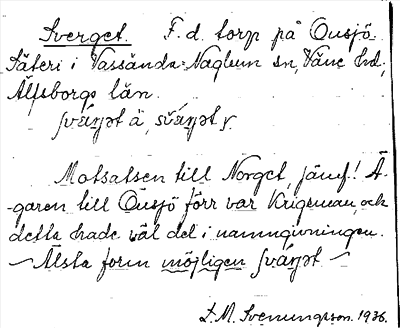 Sverget. F. d. torp på Onsjö
Säteri i Vassända-Naglum sn, Väne hd,
Älfsborgs län.
Motsatsen till Norget, jämf.! Ä-
garen till Onsjö förr var Krigsman, och
detta hade väl del i namngivningen.
— Älsta form möjligen
S. M. Svenungsson. 1936.